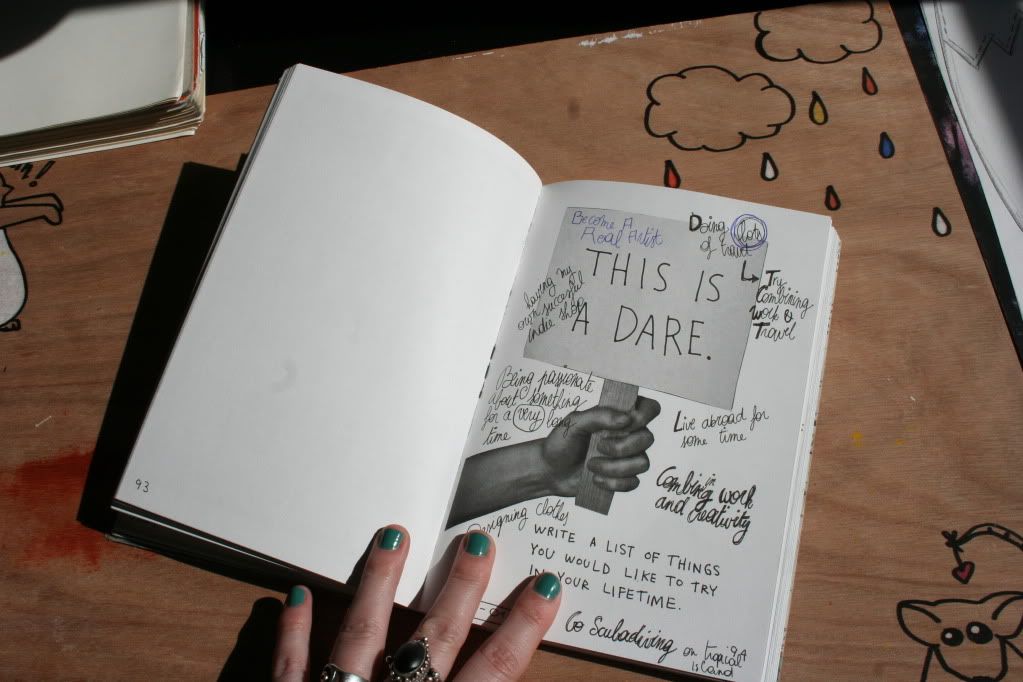 93
Become A
Real Artist
Doing lots
of travel
THIS IS
A DARE.
having my
own succesful
indie shop
Try
Combining
Work &
Travel
Being passionate
about something
for a very long
time
Live abroad for
some time
Combing work
in
and creativity
Designing clothes
WRITE A LIST OF THINGS
YOU WOULD LIKE TO TRY
IN YOUR LIFETIME.
Go Scubadiving on tropical
island